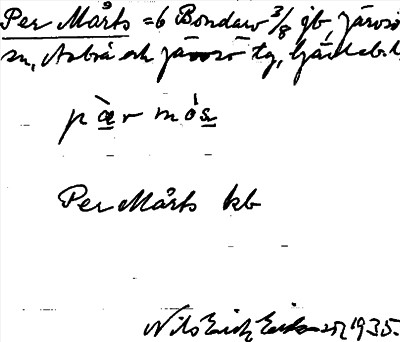 Per Mårts =6 Bondarv 3/8 jb, Järvsö
sn, Arbrå och Järvsö tg,
pær mós
Per Mårts kb
Nils Erich Eriksson 1935.